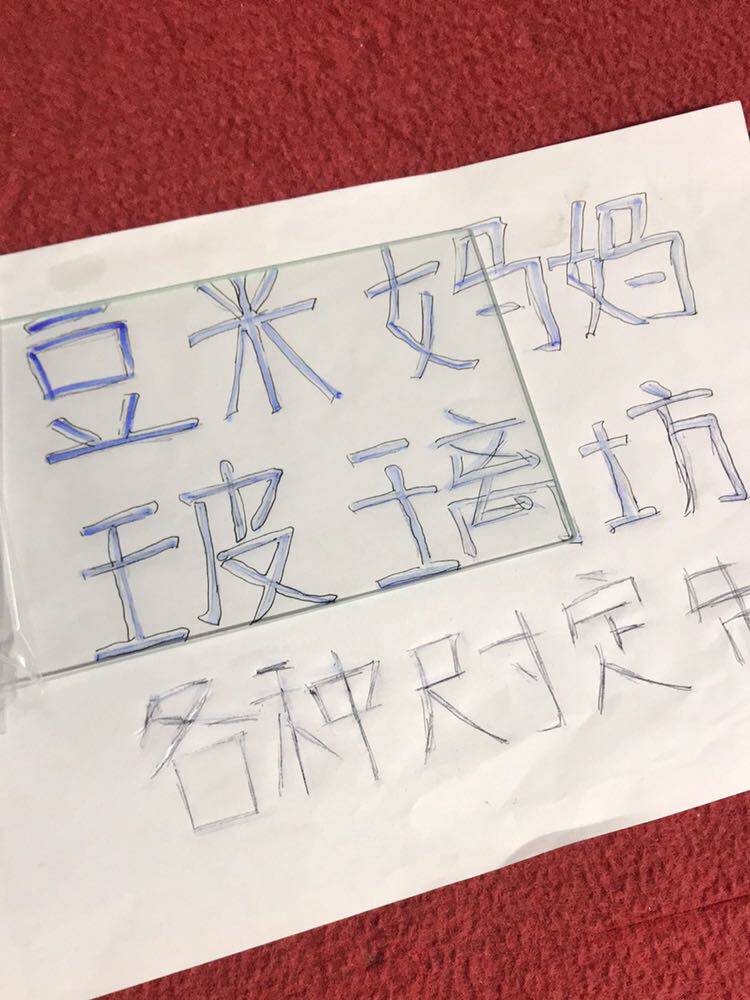 豆米妈妈
玻璃坊
各种尺寸定